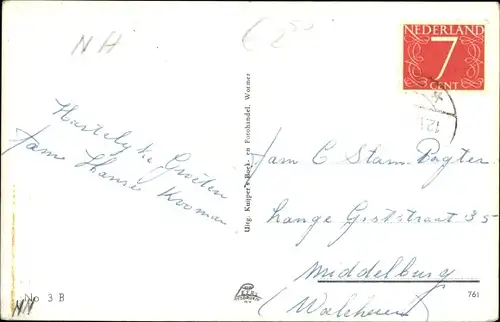 NH
NEDERLAND
7
CENT
Hartelyke Groeten
fam Hansi Kooman
Uitg. Kuiper's Boek- en Fotohandel, Wormer
fam C Stam-Pogter
Lange Geststraat 35
Middelburg
(Walcheren)
No 3 B
NH
761